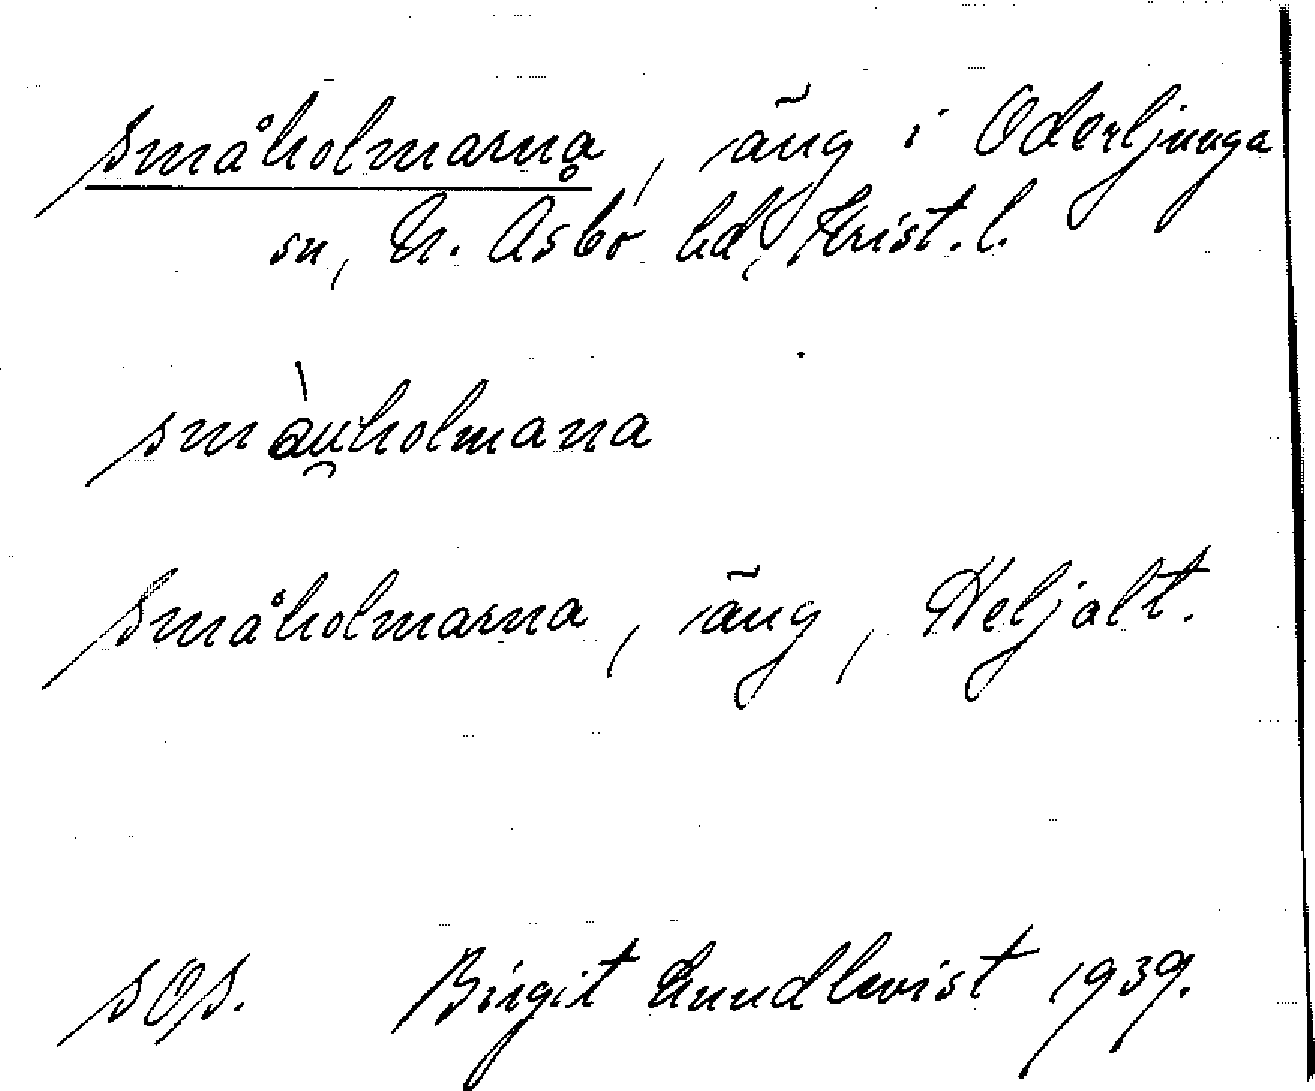 Småholmarna, äng i Oderljunga
sn, N. Åsbo hd, Krist. l.
småu̯holmana
Småholmarna, äng, Heljalt.
sOs. Birgit Lundkvist 1939.